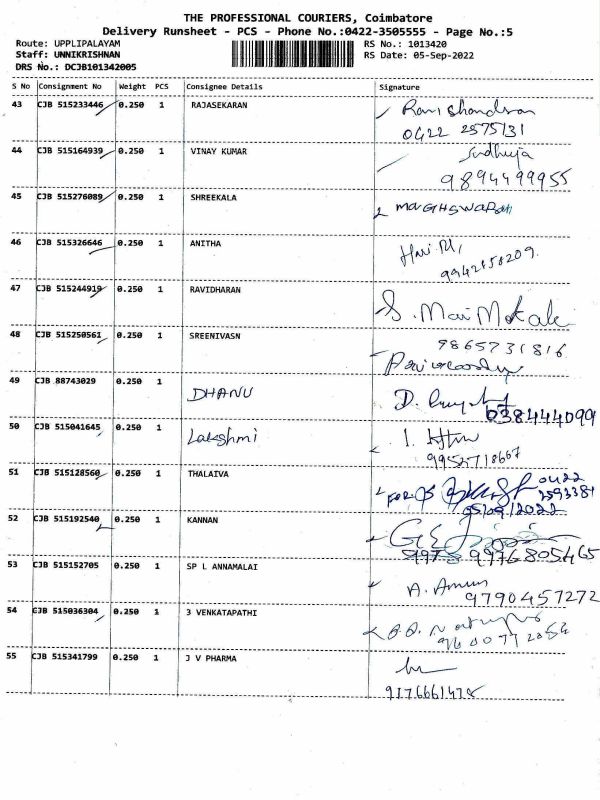 THE PROFESSIONAL COURIERS, Coimbatore
Delivery Runsheet - PCS - Phone No.:0422-3505555 - Page No.:5
Route: UPPLIPALAYAM RS No.: 1013420
Staff: UNNIKRISHNAN RS Date: 05-Sep-2022
DRS No.: DCJB101342005
S No Consignment No Weight PCS Consignee Details Signature
43 CJB 515233446 0.250 1 RAJASEKARAN
0422 2575131
44 CJB 515164939 0.250 1 VINAY KUMAR
9894499955
45 CJB 515276089 0.250 1 SHREEKALA
46 CJB 515326646 0.250 1 ANITHA
47 CJB 515244919 0.250 1 RAVIDHARAN
S. Mari
48 CJB 515250561 0.250 1 SREENIVASN 9865731816
49 CJB 88743029 0.250 1 DHANU D.
50 CJB 515041645 0.250 1 Lakshmi
51 CJB 515128560 0.250 1 THALAIVA 0422
05/09/2022
52 CJB 515192540 0.250 1 KANNAN
9776805465
53 CJB 515152705 0.250 1 SP L ANNAMALAI A.
9790457272
54 CJB 515036304 0.250 1 3 VENKATAPATHI
55 CJB 515341799 0.250 1 J V PHARMA